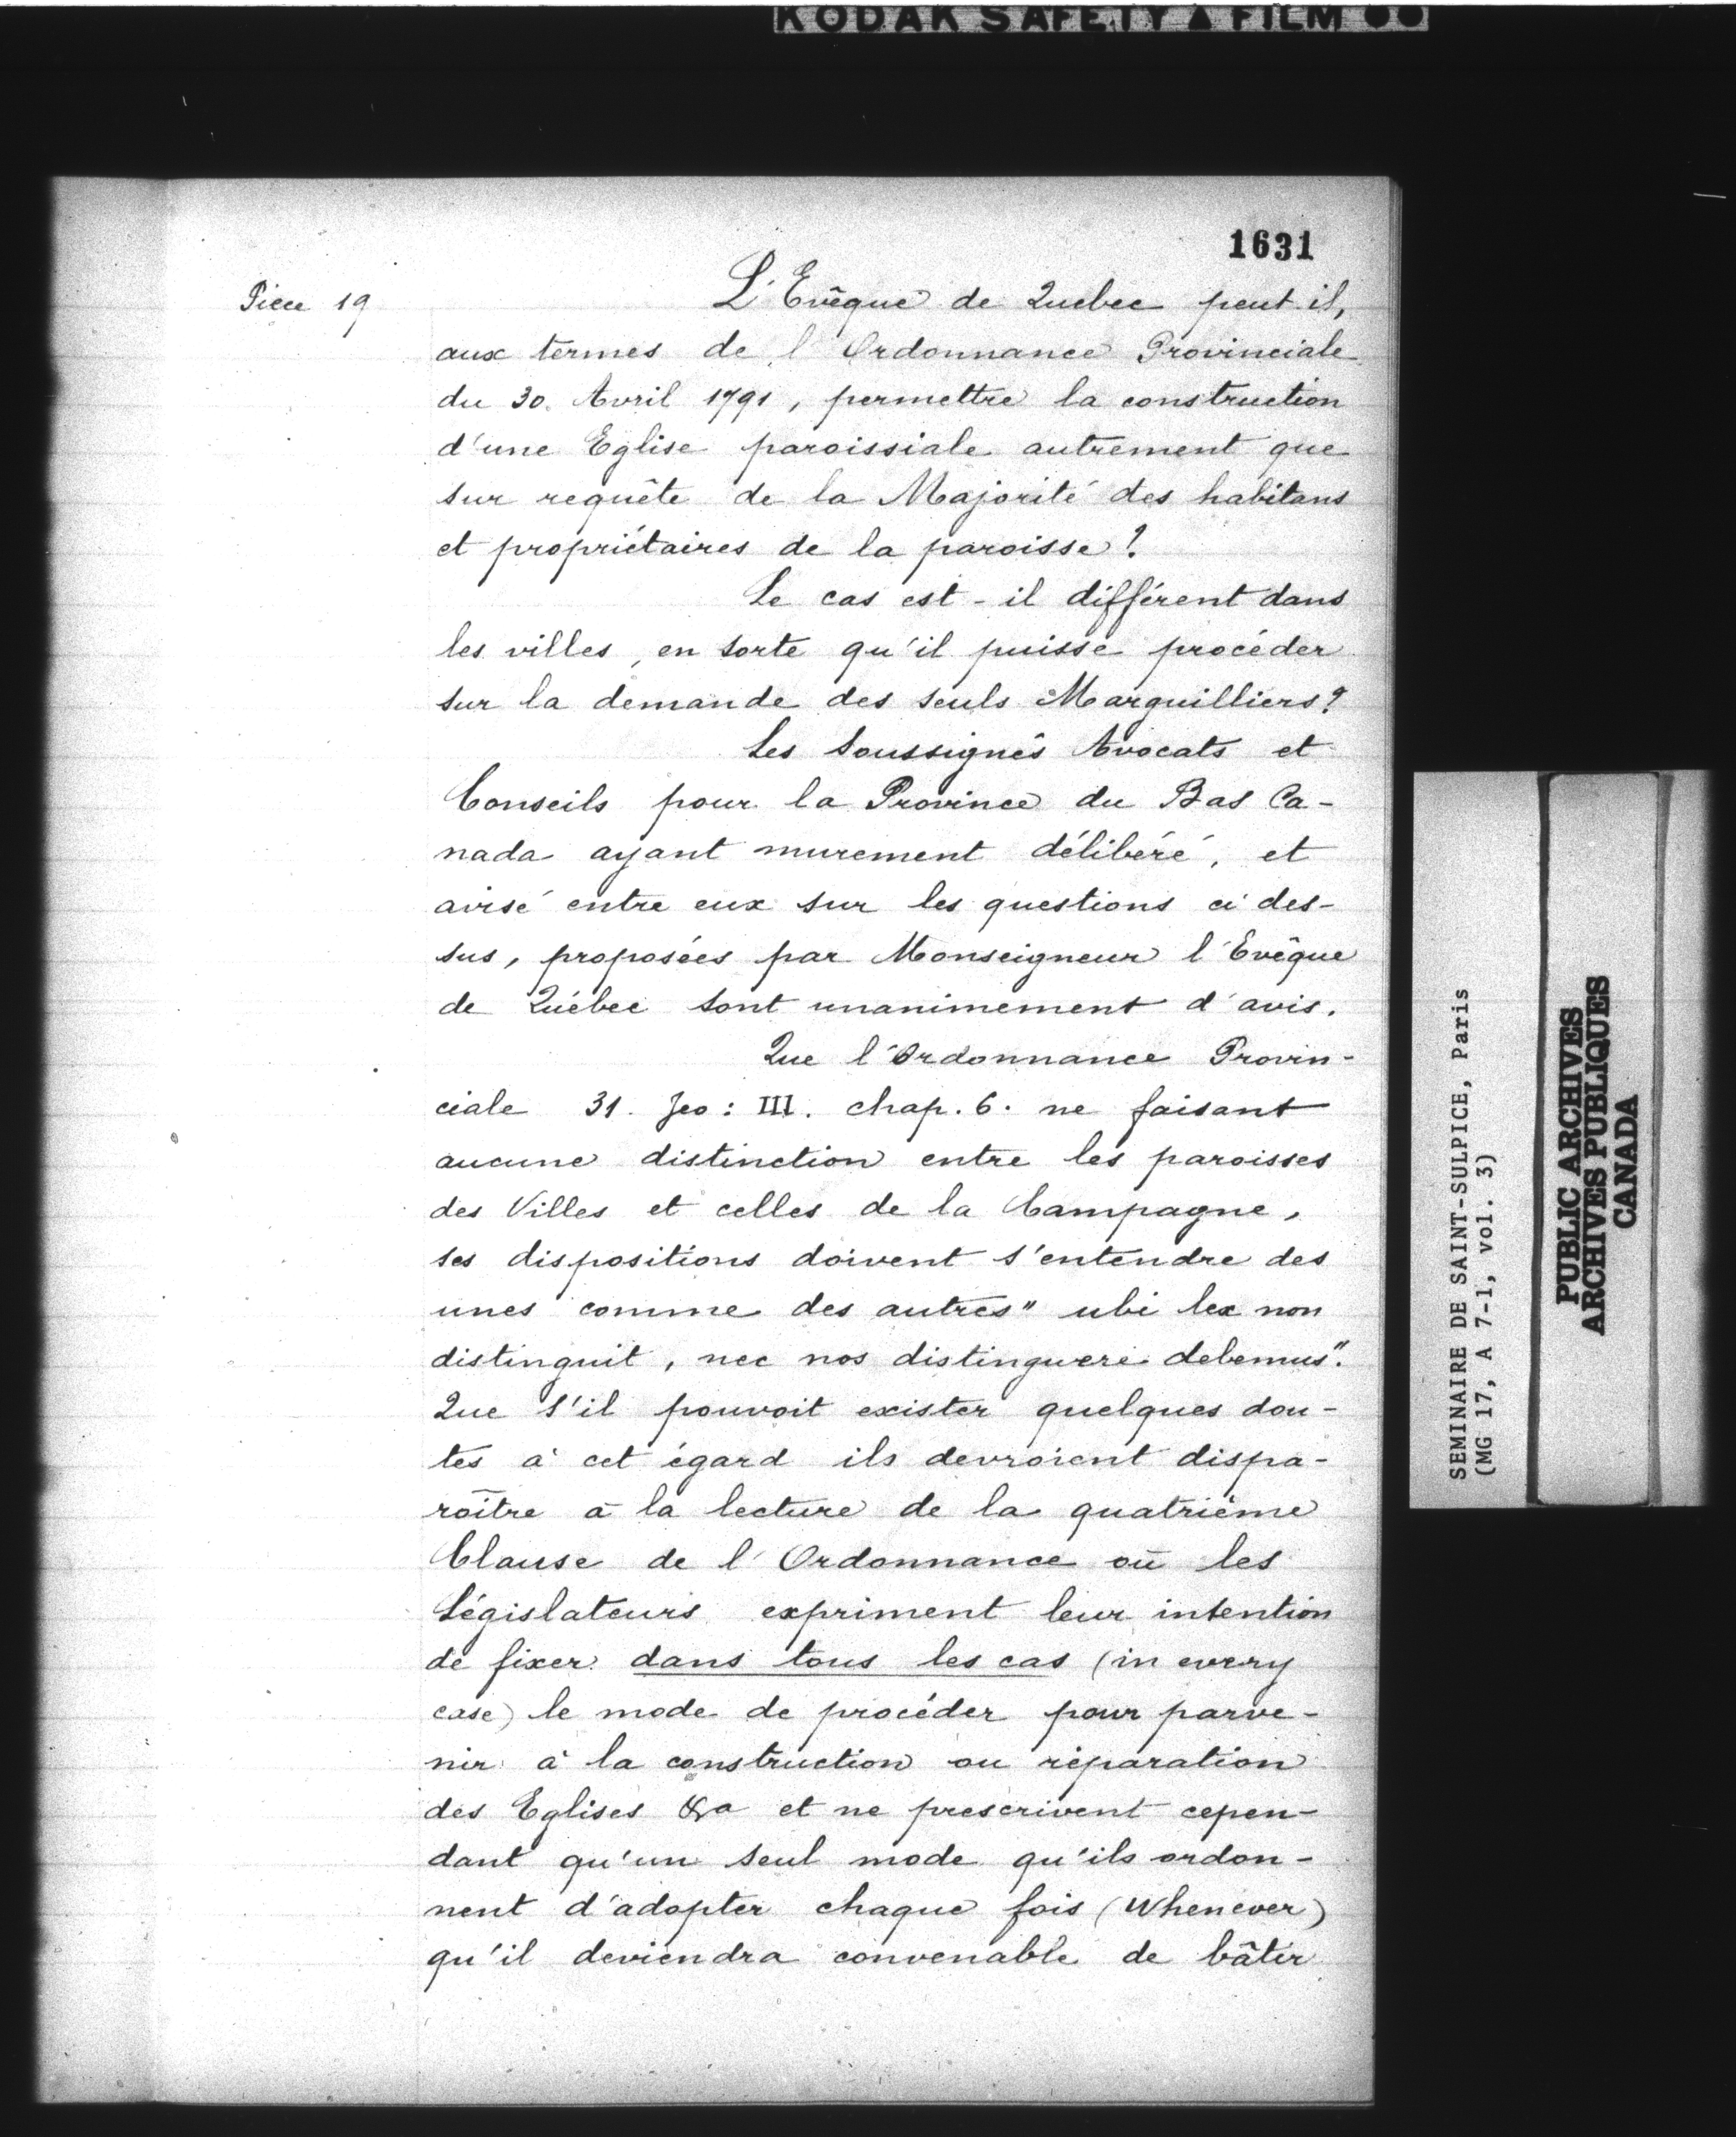 KODAK SAFETY ▲ FILM ●●
1631
Pièce 19
L'Evêque de Quebec peut il,
aux termes de l'Ordonnance Provinciale
du 30. Avril 1791, permettre la construction
d'une Eglise paroissiale autrement que
sur requête de la Majorité des habitans
et propriétaires de la paroisse?
Le cas est-il différent dans
les villes, en sorte qu'il puisse procéder
sur la demande des seuls Marguilliers?
Les Soussignés Avocats et
Conseils pour la Province du Bas Ca-
nada ayant murement délibéré, et
avisé entre eux sur les questions ci des-
sus, proposées par Monseigneur l'Evêque
de Québec sont unanimement d'avis.
Que l'Ordonnance Provin-
ciale 31. Geo: III. chap. 6. ne faisant
aucune distinction entre les paroisses
des Villes et celles de la Campagne,
ses dispositions doivent s'entendre des
unes comme des autres "ubi lex non
distinguit, nec nos distinguere debemus".
Que s'il pouvoit exister quelques dou-
tes à cet égard ils devroient dispa-
roître à la lecture de la quatrième
Clause de l'Ordonnance où les
Législateurs expriment leur intention
de fixer dans tous les cas (in every
case) le mode de procéder pour parve-
nir à la construction ou réparation
des Eglises &a et ne prescrivent cepen-
dant qu'un seul mode qu'ils ordon-
nent d'adopter chaque fois (Whenever)
qu'il deviendra convenable de bâtir
SEMINAIRE DE SAINT-SULPICE, Paris
(MG 17, A 7-1, vol. 3)
PUBLIC ARCHIVES
ARCHIVES PUBLIQUES
CANADA